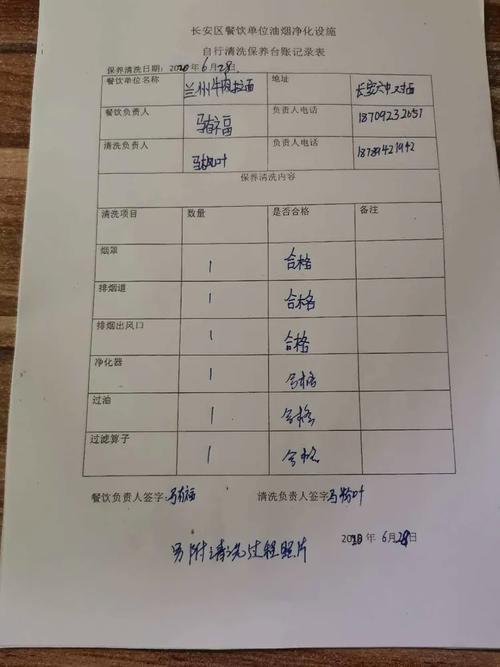 长安区餐饮单位油烟净化设施
自行清洗保养台账记录表
保养清洗日期：2020年6月28日
餐饮单位名称 兰州牛肉拉面 地址 长安六中对面
餐饮负责人 马有福 负责人电话 18709232651
清洗负责人 负责人电话 18789421942
保养清洗内容
清洗项目 数量 是否合格 备注
烟罩 1 合格
排烟道 1 合格
排烟出风口 1 合格
净化器 1 合格
过油 1 合格
过滤算子 1 合格
餐饮负责人签字：马有福 清洗负责人签字
2020年6月28日
另附清洗过程照片